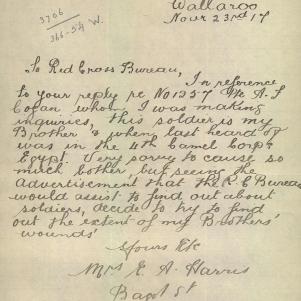 3706
366-54 W.
Wallaroo
Novr 23rd 17
To Red Cross Bureau,
In reference
to your reply re No 1257 Mr A. F
Cogan whom I was making
inquiries, this soldier is my
Brother & when last heard of
was in the 4th Camel Corps
Egypt. Very sorry to cause so
much bother, but seeing the
advertisement that the R C Bureau
would assist to find out about
soldiers, decide to try to find
out the extent of my Brothers'
wounds'
Yours Etc
Mrs E. A. Harris
St